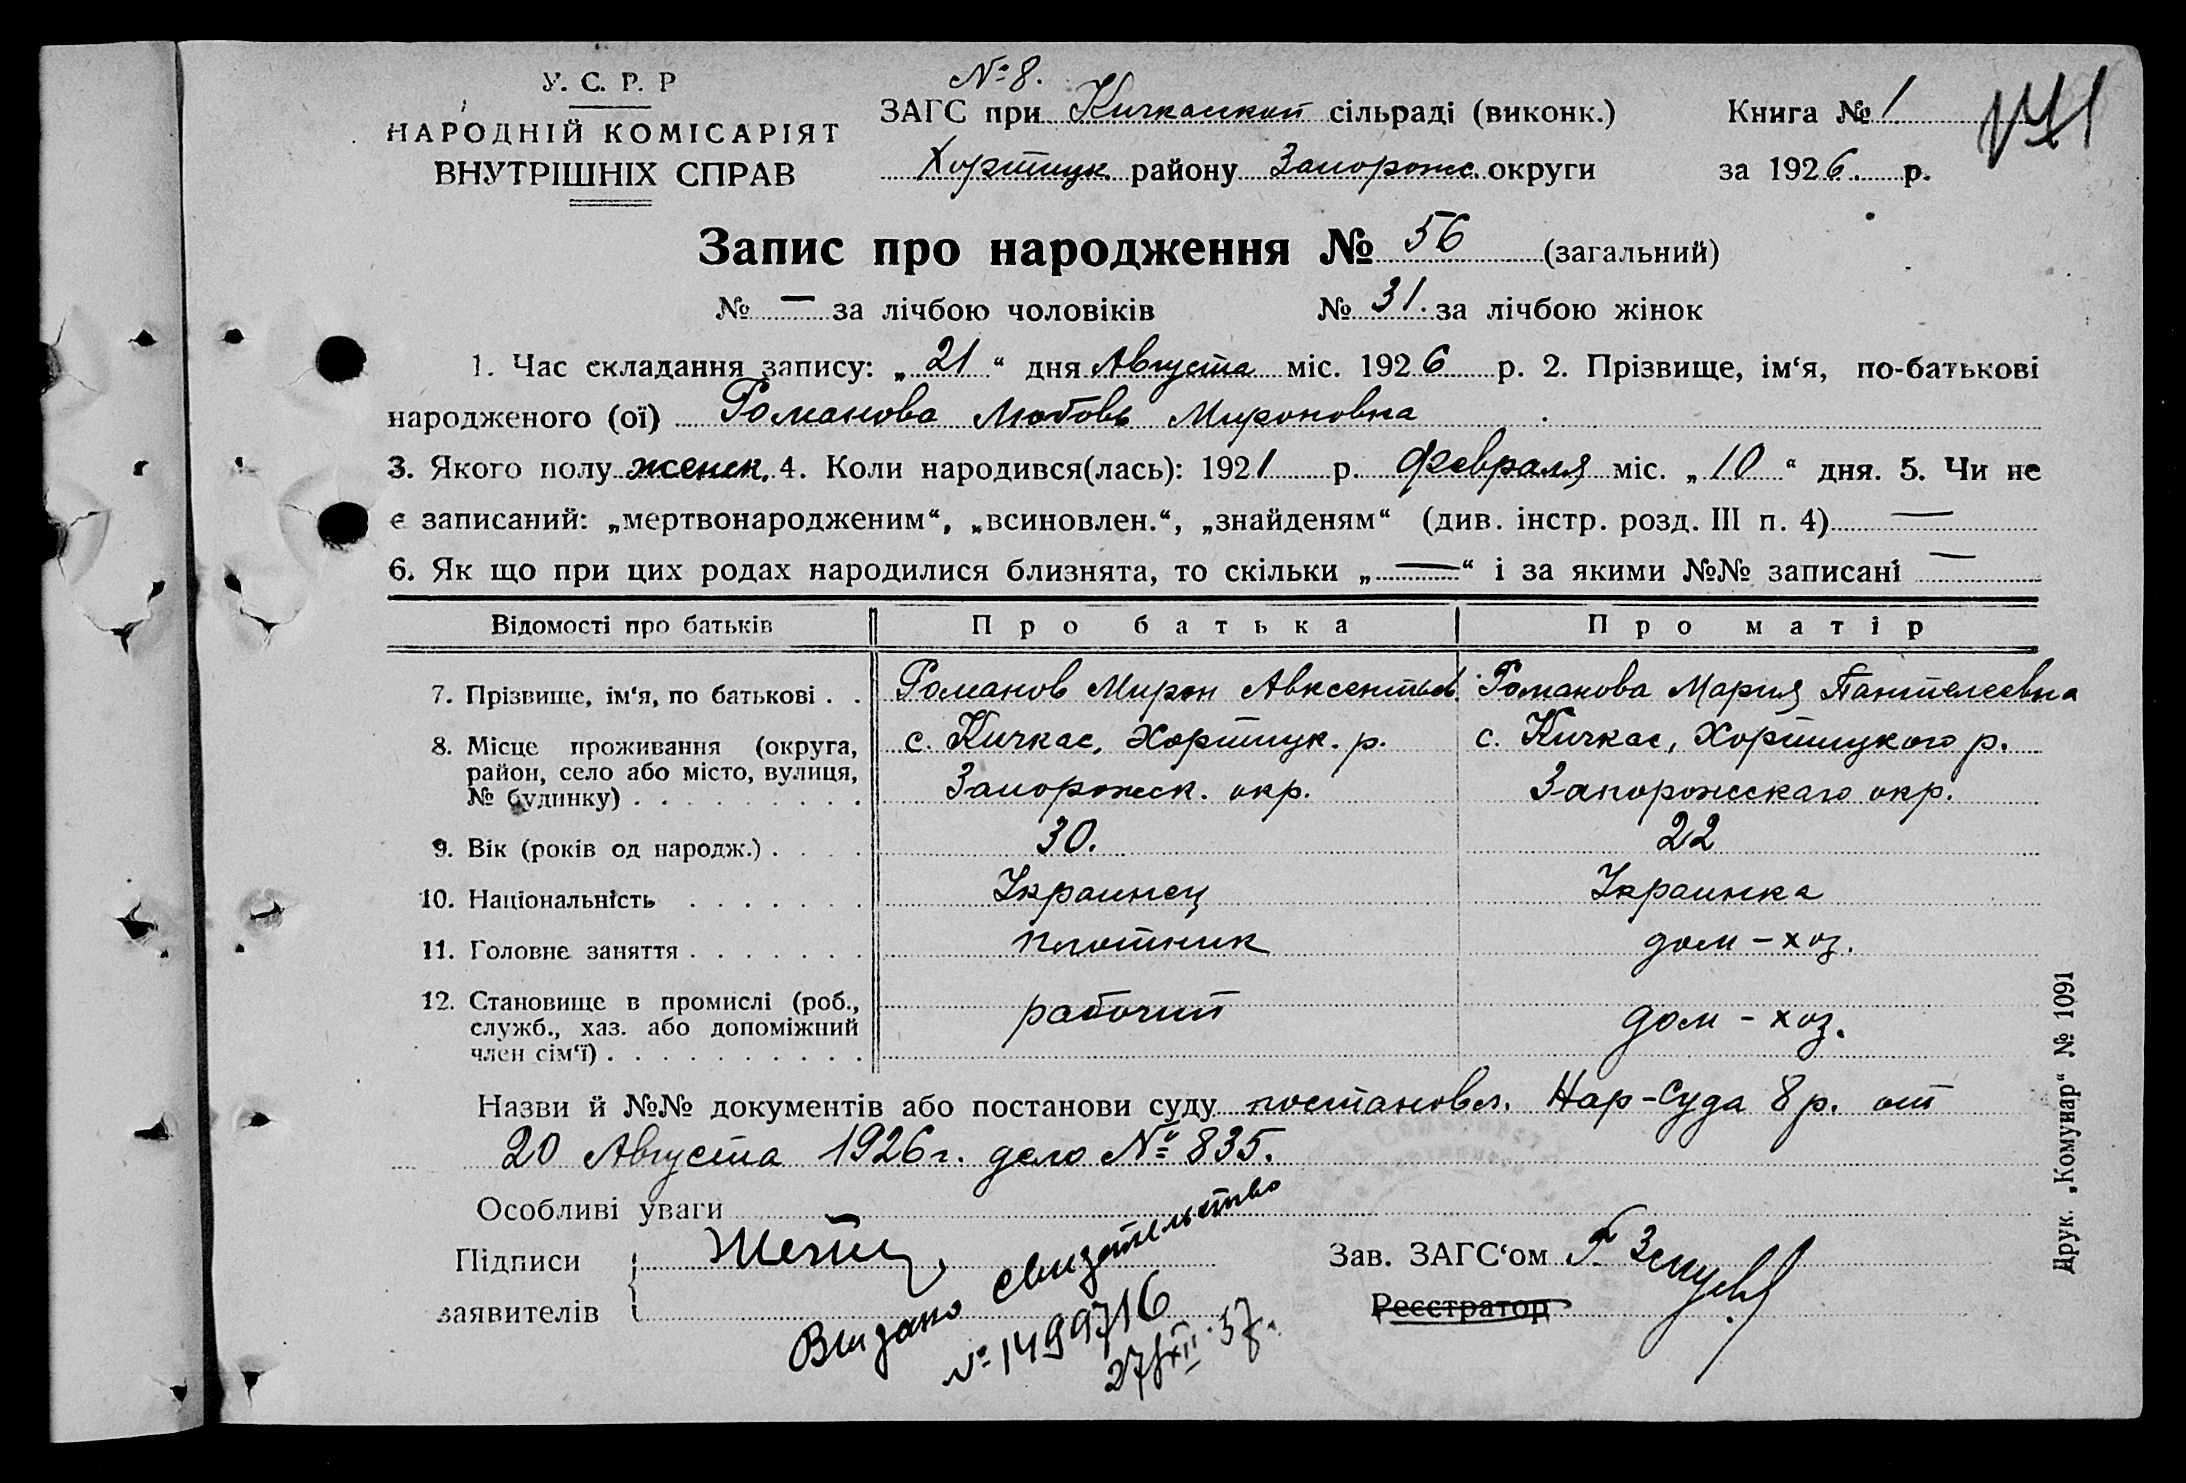 У. С. Р. Р
НАРОДНІЙ КОМІСАРІЯТ
ВНУТРІШНІХ СПРАВ
№ 8.
ЗАГС при Кичкаский сільраді (виконк.)
Хортицк району Запорожс. округи
Книга № 1
за 1926. р.
Запис про народження № 56 (загальний)
№ — за лічбою чоловіків № 31. за лічбою жінок
1. Час складання запису: „ 21 “ дня Августа міс. 1926 р. 2. Прізвище, ім‘я, по-батькові
народженого (ої) Романова Любовь Мироновна
3. Якого полу женск. 4. Коли народився(лась): 1921 р. Февраля міс. „ 10 “ дня. 5. Чи не
є записаний: „мертвонародженим“, „всиновлен.“, „знайденям“ (див. інстр. розд. III п. 4) —
6. Як що при цих родах народилися близнята, то скільки „ — “ і за якими №№ записані —
Відомості про батьків Про батька Про матір
7. Прізвище, ім‘я, по батькові . . Романов Мирон Авксентьев. Романова Мария Пантелеевна
8. Місце проживання (округа, с. Кичкас, Хортицк. р. с. Кичкас, Хортицкого р.
район, село або місто, вулиця,
№ будинку) . . . . . . . . . Запорожск. окр. Запорожскаго окр.
9. Вік (років од народж.) . . . . 30. 22
10. Національність . . . . . . . Украинец Украинка
11. Головне заняття . . . . . . . плотник дом-хоз.
12. Становище в промислі (роб.,
служб., хаз. або допоміжний рабочий дом-хоз.
член сім‘ї) . . . . . . . . . .
Назви й №№ документів або постанови суду постановл. Нар-Суда 8 р. от
20 Августа 1926 г. дело № 835.
Особливі уваги
Підписи
заявителів
Зав. ЗАГС‘ом
Реєстратор
Выдано свидетельство
№ 1499716
27/XII. 57.
Друк. „Комунар“ № 1091